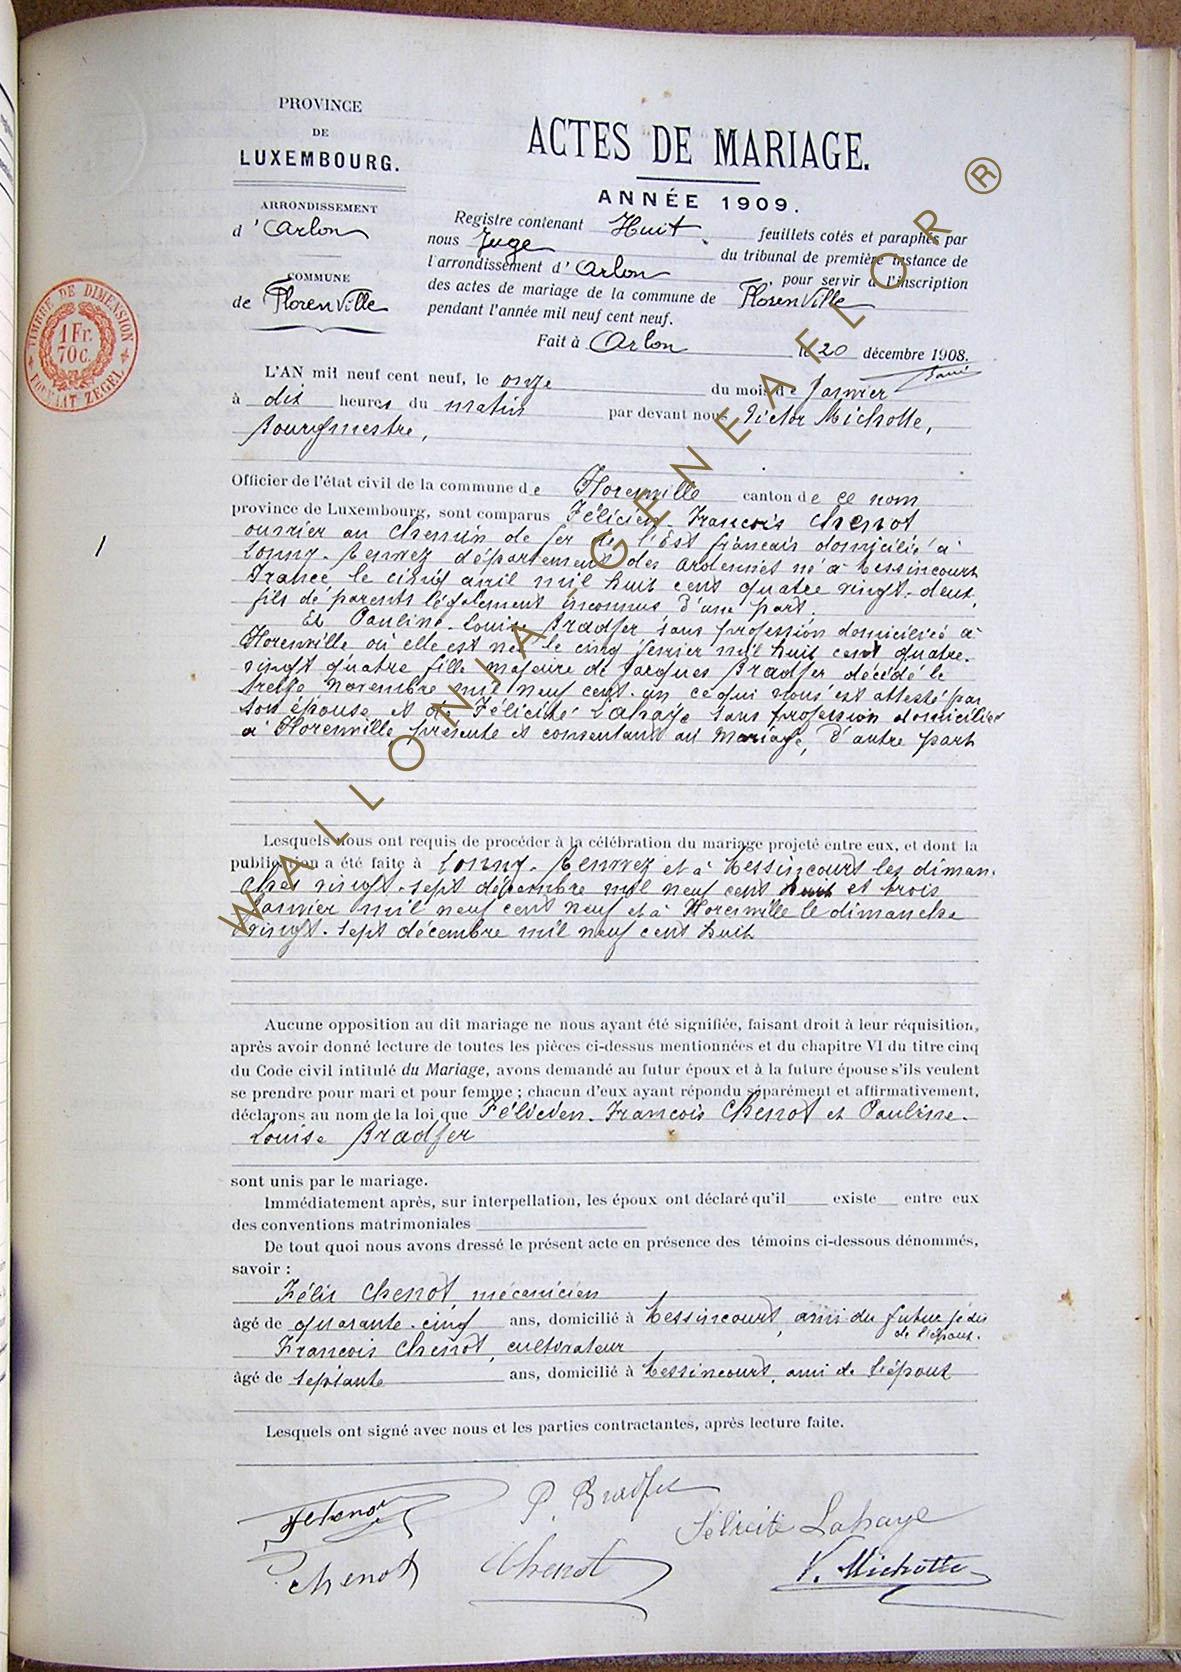 PROVINCE
DE
LUXEMBOURG.
ARRONDISSEMENT
d'Arlon
COMMUNE
de Florenville
TIMBRE DE DIMENSION
1 Fr.
70 c.
FORMAAT ZEGEL
ACTES DE MARIAGE.
ANNÉE 1909.
Registre contenant Huit feuillets cotés et paraphés par
nous Juge du tribunal de première instance de
l'arrondissement d'Arlon, pour servir à l'inscription
des actes de mariage de la commune de Florenville
pendant l'année mil neuf cent neuf.
Fait à Arlon le 20 décembre 1908.
L'AN mil neuf cent neuf, le onze du mois de Janvier
à dix heures du matin par devant nous Victor Michotte,
Bourgmestre,
Officier de l'état civil de la commune de Florenville canton de ce nom
province de Luxembourg, sont comparus Félicien-François Chenot
ouvrier au chemin de fer de l'Est français domicilié à
Lonny-Renwez département des Ardennes né à Messincourt
France le cinq avril mil huit cent quatre vingt-deux,
fils de parents légalement inconnus d'une part.
Et Pauline-Louise Bradfer sans profession domiciliée à
Florenville où elle est née le cinq février mil huit cent quatre-
vingt quatre fille majeure de Jacques Bradfer décédé le
treize novembre mil neuf cent-un ce qui nous est attesté par
son épouse et de Félicité Lahaye sans profession domiciliée
à Florenville présente et consentant au mariage, d'autre part
Lesquels nous ont requis de procéder à la célébration du mariage projeté entre eux, et dont la
publication a été faite à Lonny-Renwez et à Messincourt les diman-
ches vingt-sept décembre mil neuf cent huit et trois
Janvier mil neuf cent neuf et à Florenville le dimanche
vingt-sept décembre mil neuf cent huit
Aucune opposition au dit mariage ne nous ayant été signifiée, faisant droit à leur réquisition,
après avoir donné lecture de toutes les pièces ci-dessus mentionnées et du chapitre VI du titre cinq
du Code civil intitulé du Mariage, avons demandé au futur époux et à la future épouse s'ils veulent
se prendre pour mari et pour femme ; chacun d'eux ayant répondu séparément et affirmativement,
déclarons au nom de la loi que Félicien-François Chenot et Pauline-
Louise Bradfer
sont unis par le mariage.
Immédiatement après, sur interpellation, les époux ont déclaré qu'il existe entre eux
des conventions matrimoniales
De tout quoi nous avons dressé le présent acte en présence des témoins ci-dessous dénommés,
savoir :
Félix Chenot, mécanicien
âgé de quarante-cinq ans, domicilié à Messincourt, ami du futur
de l'époux.
François Chenot, cultivateur
âgé de septante ans, domicilié à Messincourt, ami de l'époux
Lesquels ont signé avec nous et les parties contractantes, après lecture faite.
P. Bradfer
F Chenot
Félicité Lahaye
Chenot
Chenot
V. Michotte
WALLONIA-GENEAFLOR ®